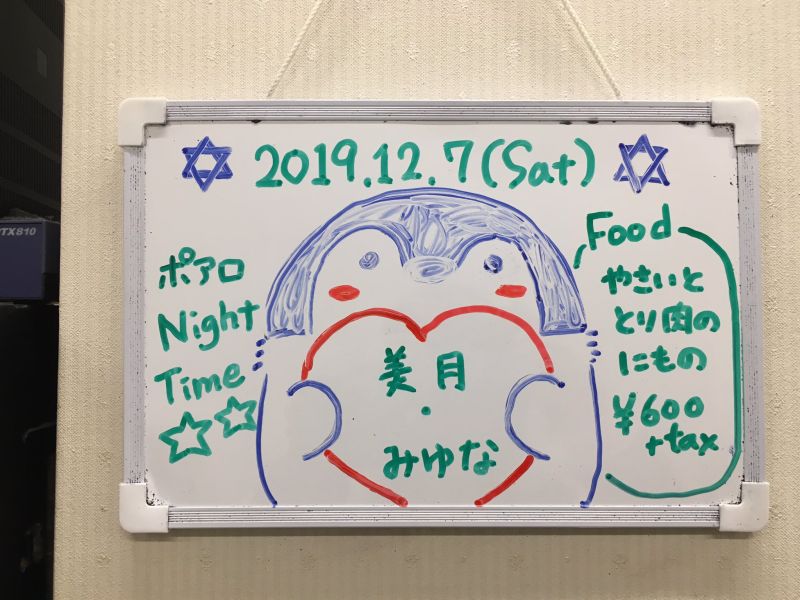 2019.12.7(Sat)
ポアロ
Night
Time
美月
・
みゆな
Food
やさいと
とり肉の
にもの
¥600
+tax
TX810